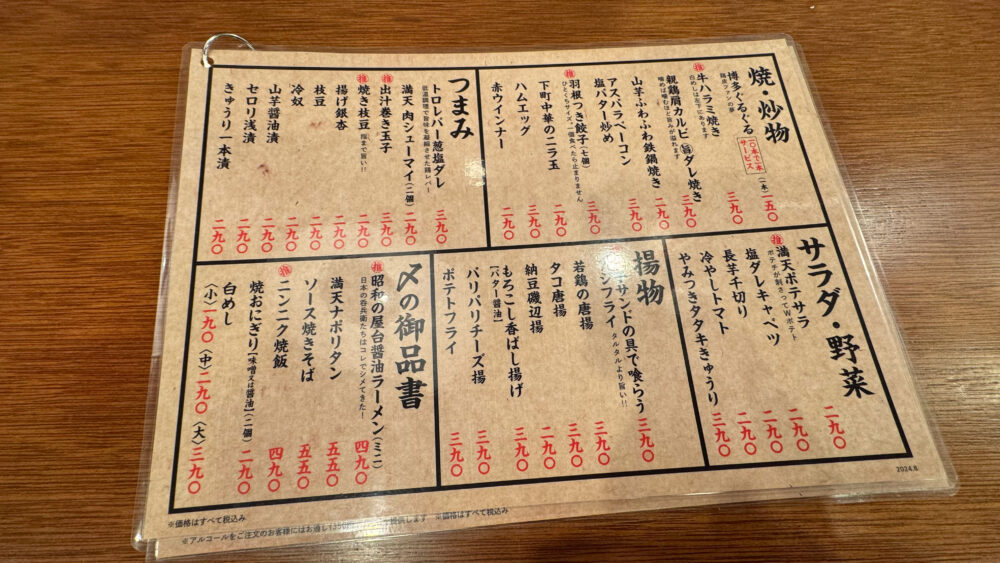 焼・炒物
博多ぐるぐる（一本）一五〇
鶏皮ファンの夢
一〇本で一本サービス
推 牛ハラミ焼き 三九〇
白めしは左下にあります
親鶏肩カルビ 旨ダレ焼き 三九〇
噛めば噛むほど旨みが溢れます
山芋ふわふわ鉄鍋焼き 二九〇
アスパラベーコン
塩バター炒め 三九〇
推 羽根つき餃子（七個） 三九〇
ひとくちサイズ。一個食べたら止まりません
下町中華のニラ玉 二九〇
ハムエッグ 二九〇
赤ウインナー 二九〇
つまみ
トロレバー葱塩ダレ 三九〇
低温調理で旨味を凝縮させた鶏レバー
満天 肉シューマイ（二個） 二九〇
推 出汁巻き玉子 三九〇
推 焼き枝豆 指まで旨い!! 二九〇
揚げ銀杏 二九〇
枝豆 二九〇
冷奴 二九〇
山芋醤油漬 二九〇
セロリ浅漬 二九〇
きゅうり一本漬 二九〇
サラダ・野菜
推 満天ポテサラ 二九〇
ポテチが刺さってWポテト
塩ダレキャベツ 二九〇
長芋千切り 二九〇
冷やしトマト 二九〇
やみつきタタキきゅうり 三九〇
揚物
サンドの具で喰らう
シフライ タルタルより旨い!! 三九〇
若鶏の唐揚 三九〇
タコ唐揚 三九〇
納豆磯辺揚 二九〇
もろこし香ばし揚げ 三九〇
【バター醤油】
パリパリチーズ揚 三九〇
ポテトフライ 三九〇
〆の御品書
推 昭和の屋台醤油ラーメン（ミニ） 四九〇
日本の呑兵衛たちはコレでシメてきた!
満天ナポリタン 五五〇
ソース焼きそば 五五〇
推 ニンニク焼飯 四九〇
焼おにぎり【味噌又は醤油】（二個） 二九〇
白めし
（小）一九〇（中）二九〇（大）三九〇
2024.8
※価格はすべて税込み
※価格はすべて税込み
※アルコールをご注文のお客様にはお通し
提供します